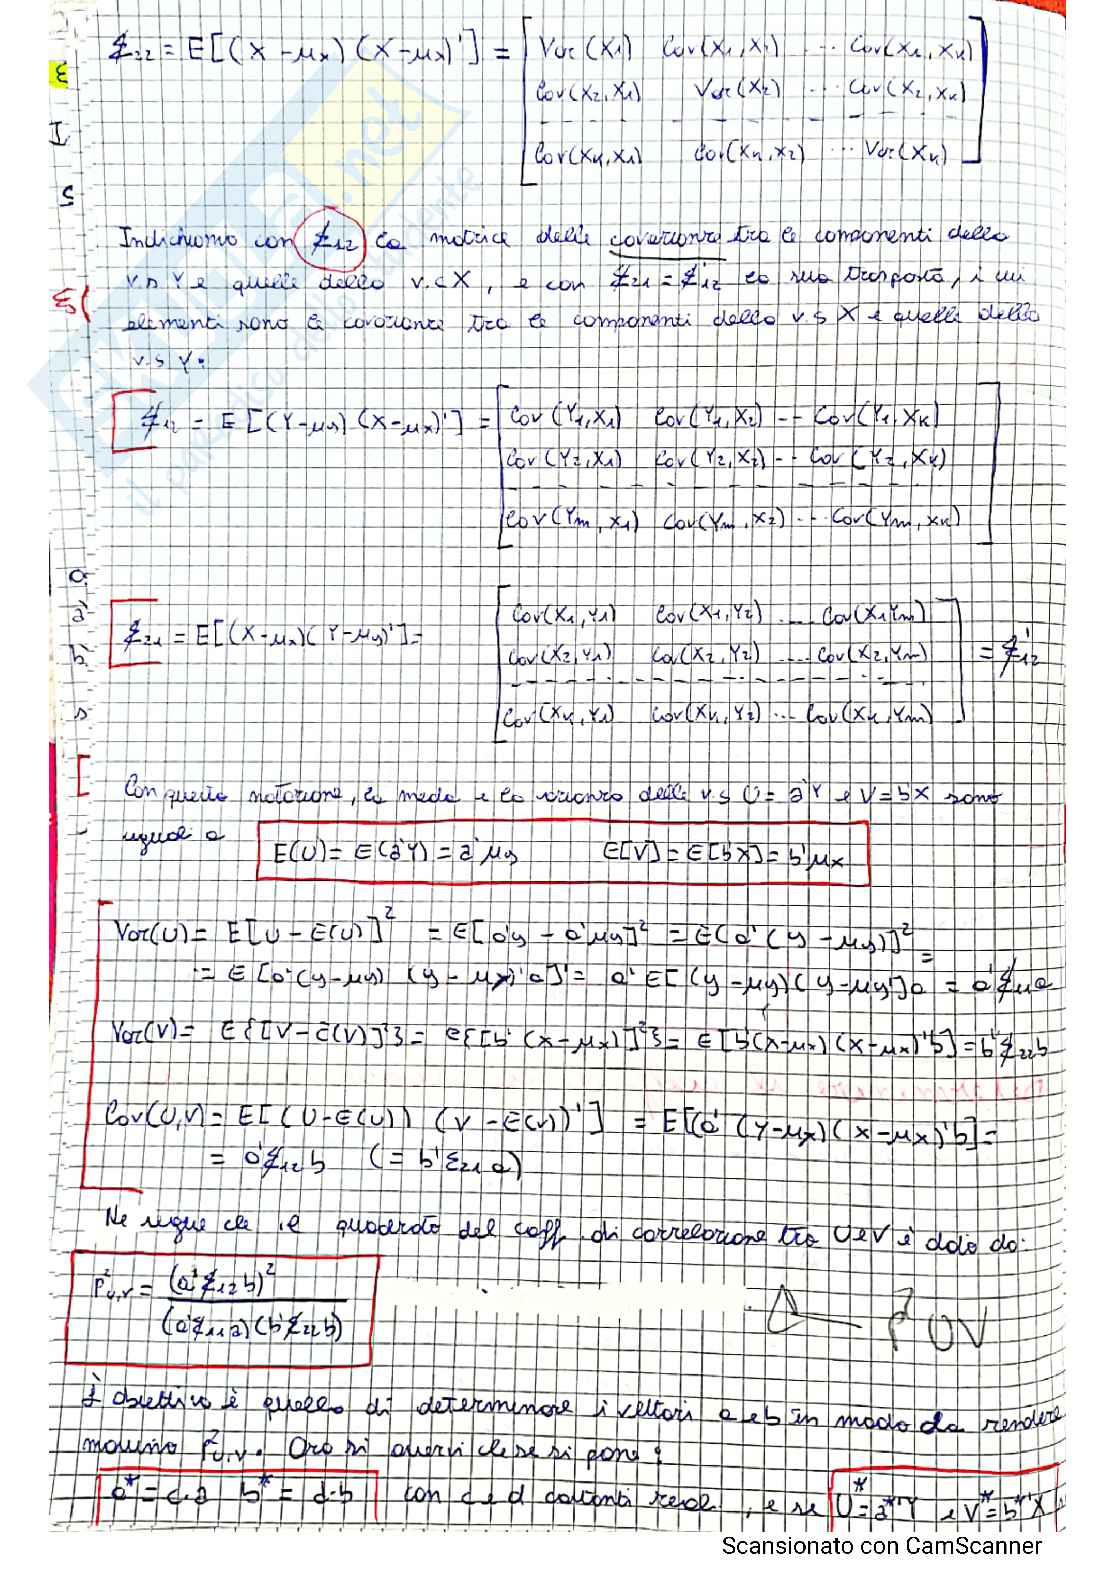 Σ22 = E[(X-μx)(X-μx)'] = [Var(X1) Cov(X1,X1) ... Cov(X1,XK)
Cov(X2,X1) Var(X2) ... Cov(X2,XK)
Cov(XK,X1) Cov(XK,X2) ... Var(XK)]
Indichiamo con Σ12 la matrice delle covarianza tra le componenti dello
v.s Y e quelle dello v.c X, e con Σ21 = Σ'12 la sua trasposta, i cui
elementi sono le covarianti tra le componenti dello v.s X e quelle dello
v.s Y.
Σ12 = E[(Y-μy)(X-μx)'] = [Cov(Y1,X1) Cov(Y1,X2) -- Cov(Y1,XK)
Cov(Y2,X1) Cov(Y2,X2) -- Cov(Y2,XK)
Cov(Ym,X1) Cov(Ym,X2) ... Cov(Ym,XK)]
Σ21 = E[(X-μx)(Y-μy)'] = [Cov(X1,Y1) Cov(X1,Y2) .... Cov(X1,Ym)
Cov(X2,Y1) Cov(X2,Y2) .... Cov(X2,Ym) = Σ'12
Cov(XK,Y1) Cov(XK,Y2) ... Cov(XK,Ym)]
Con questa notazione, la media e la varianza delle v.s U = a'Y e V = bX sono
uguali a E(U) = E(a'Y) = a'μy E[V] = E[bX] = b'μx
Var(U) = E[U-E(U)]² = E[a'y - a'μy]² = E(a'(y-μy)]² =
= E[a'(y-μy)(y-μx)'a]' = a'E[(y-μy)(y-μy']a = a'Σ11a
Var(V) = E{[V-E(V)]²} = e{[b'(X-μx)]²} = E[b'(X-μx)(X-μx)'b] = b'Σ22b
Cov(U,V) = E[(U-E(U))(V-E(V))'] = E[(a'(Y-μx)(X-μx)'b] =
= a'Σ12b (= b'Σ21a)
Ne segue che il quadrato del coeff. di correlazione tra U e V è dato da:
ρ²u,v = (a'Σ12b)² / (a'Σ11a)(b'Σ22b) ρ²UV
L'obiettivo è quello di determinare i vettori a e b in modo da rendere
massimo ρ²u,v. Ora si osservi che se si pone:
a* = c·a b* = d·b con c e d costanti reali, e se U* = a*'Y e V* = b*'X
Scansionato con CamScanner